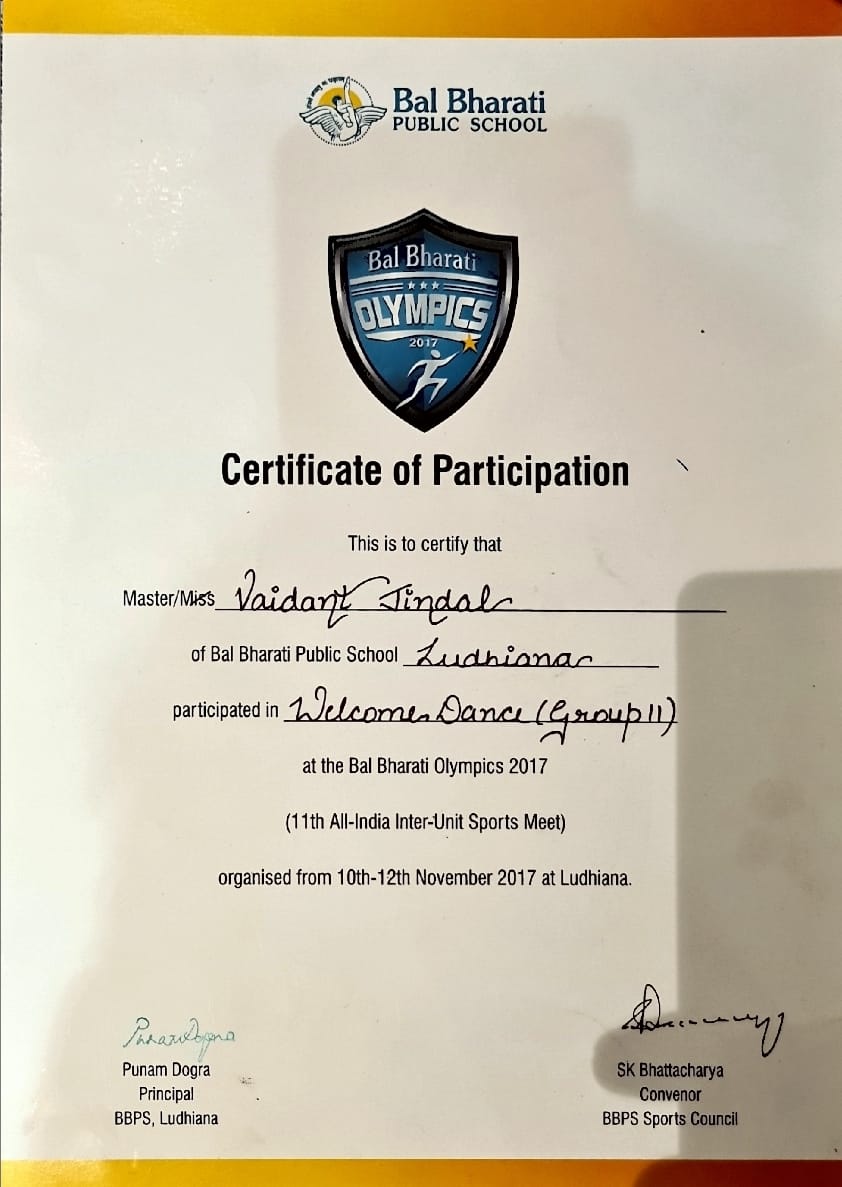 Bal Bharati
PUBLIC SCHOOL
Bal Bharati
OLYMPICS
2017
Certificate of Participation
This is to certify that
Master/Miss Vaidant Jindal
of Bal Bharati Public School Ludhiana
participated in Welcome Dance (Group 11)
at the Bal Bharati Olympics 2017
(11th All-India Inter-Unit Sports Meet)
organised from 10th-12th November 2017 at Ludhiana.
Punam Dogra
Punam Dogra
Principal
BBPS, Ludhiana
SK Bhattacharya
Convenor
BBPS Sports Council